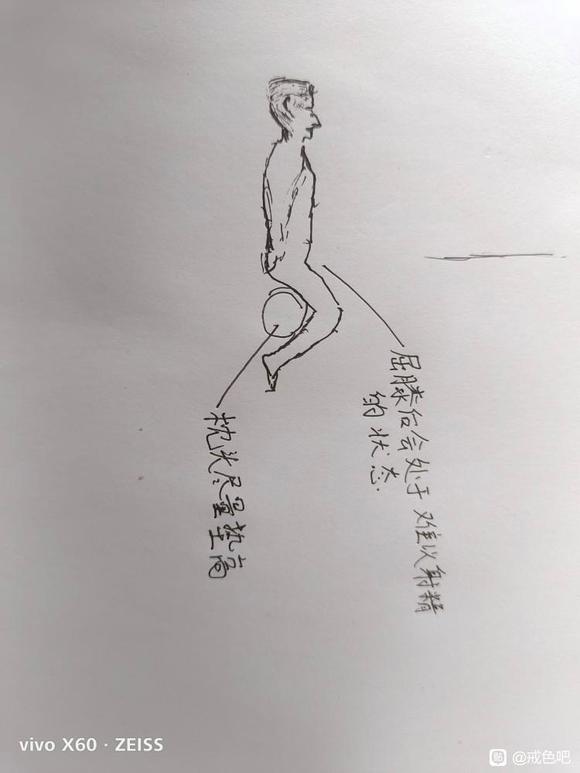 屈膝后会处于难以射精
的状态.
枕头尽量垫高
vivo X60 · ZEISS
贴 @戒色吧